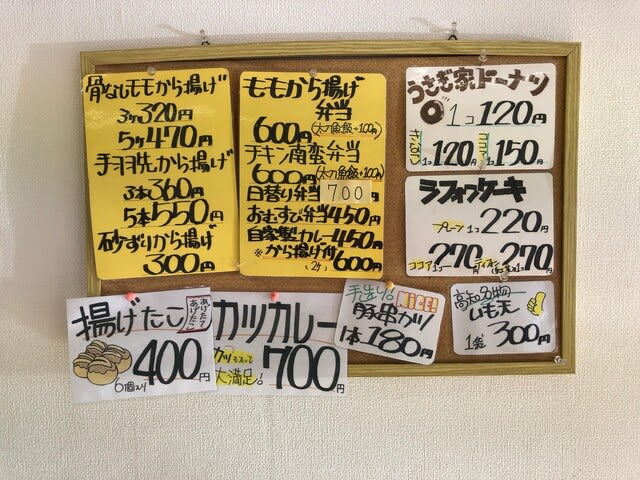 骨なしモモから揚げ
3ヶ320円
5ヶ470円
手羽先から揚げ
3本360円
5本550円
砂ずりから揚げ
300円
ももから揚げ
弁当
600円(太刀魚飯+100円)
チキン南蛮弁当
600円(太刀魚飯+100円)
日替り弁当700円
おむすび弁当450円
自家製カレー450円
※から揚げ付600円
(2ヶ)
うさぎ家ドーナツ
1コ120円
1コ120円
ココア
1コ150円
シフォンケーキ
プレーン1コ220円
ココア1コ270円
270円
揚げたこ
あげたて
あげたこ
400円
6個入り
カツカレー
カツもスって
大満足!
700円
手造り。NiCE!
豚串カツ
1本180円
高知名物
いも天
1袋300円